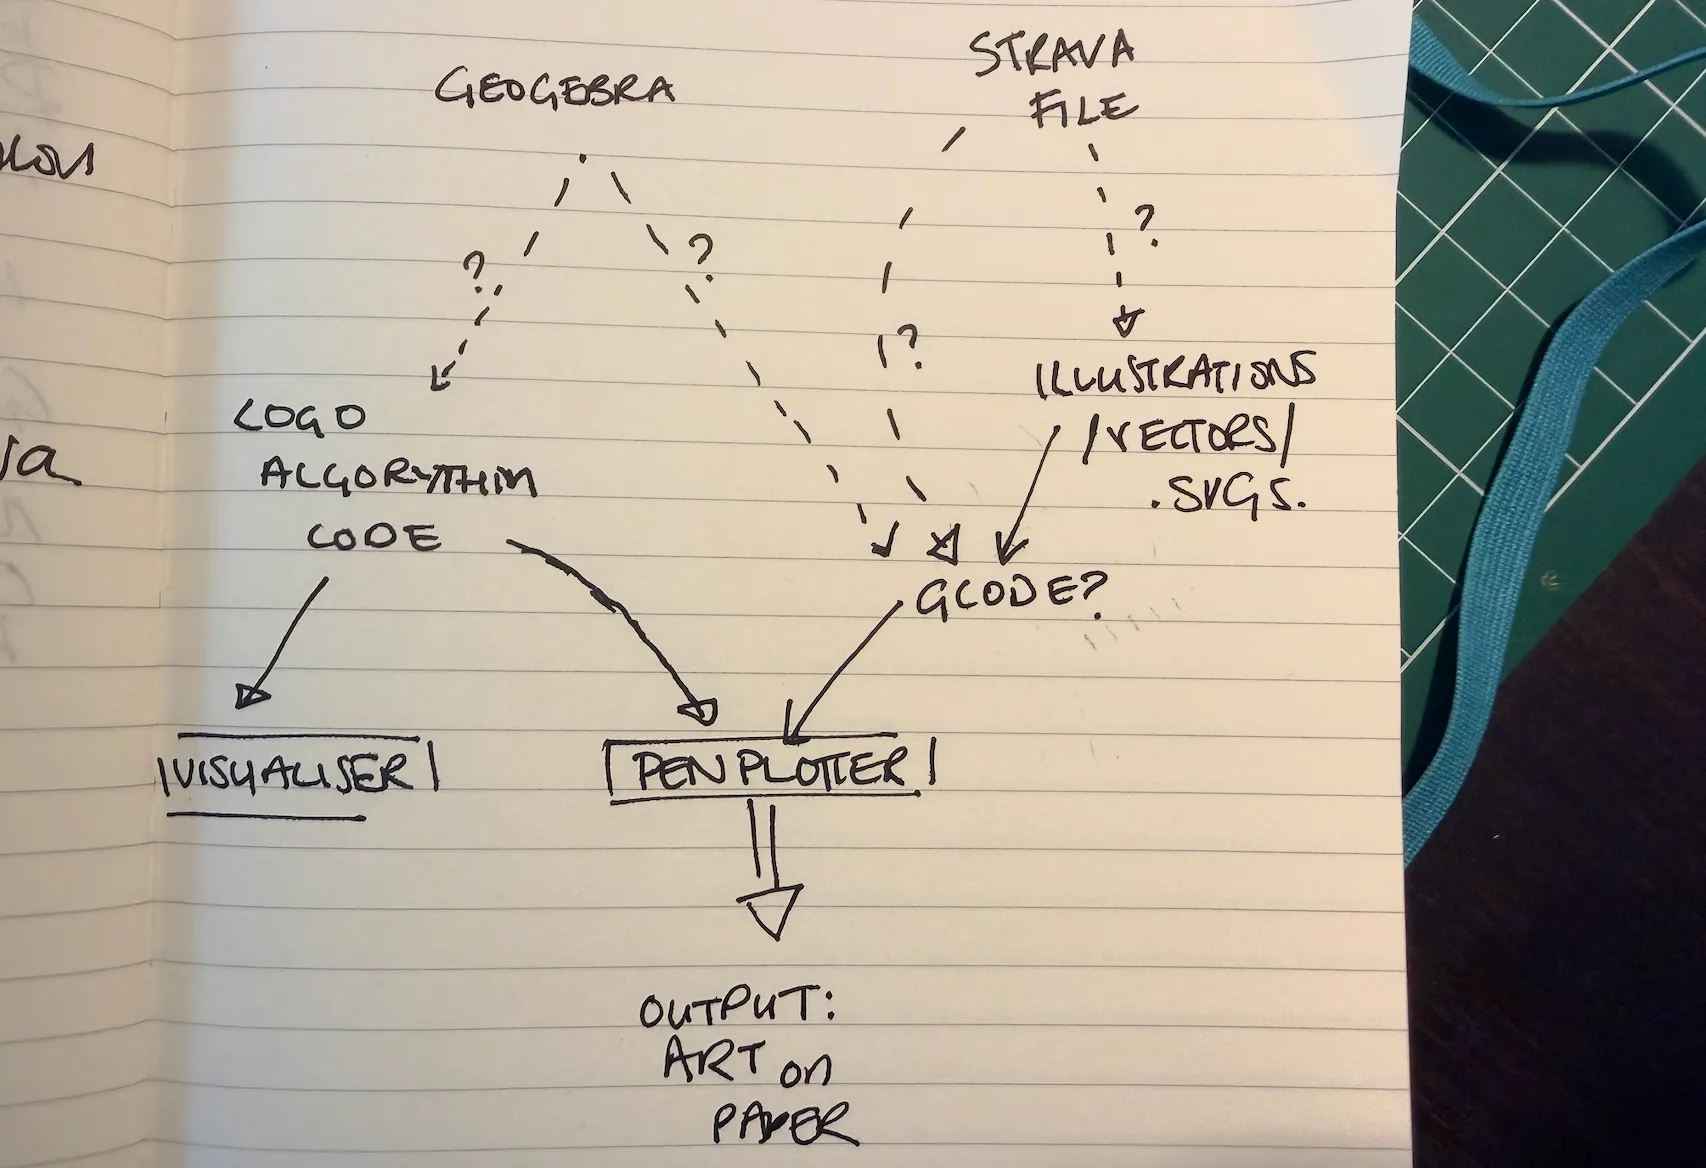 GEOGEBRA
STRAVA
FILE
?
?
?
?
ILLUSTRATIONS
/VECTORS/
.SVGS.
LOGO
ALGORYTHIM
CODE
GCODE?
VISUALISER
PEN PLOTTER
OUTPUT:
ART on
PAPER